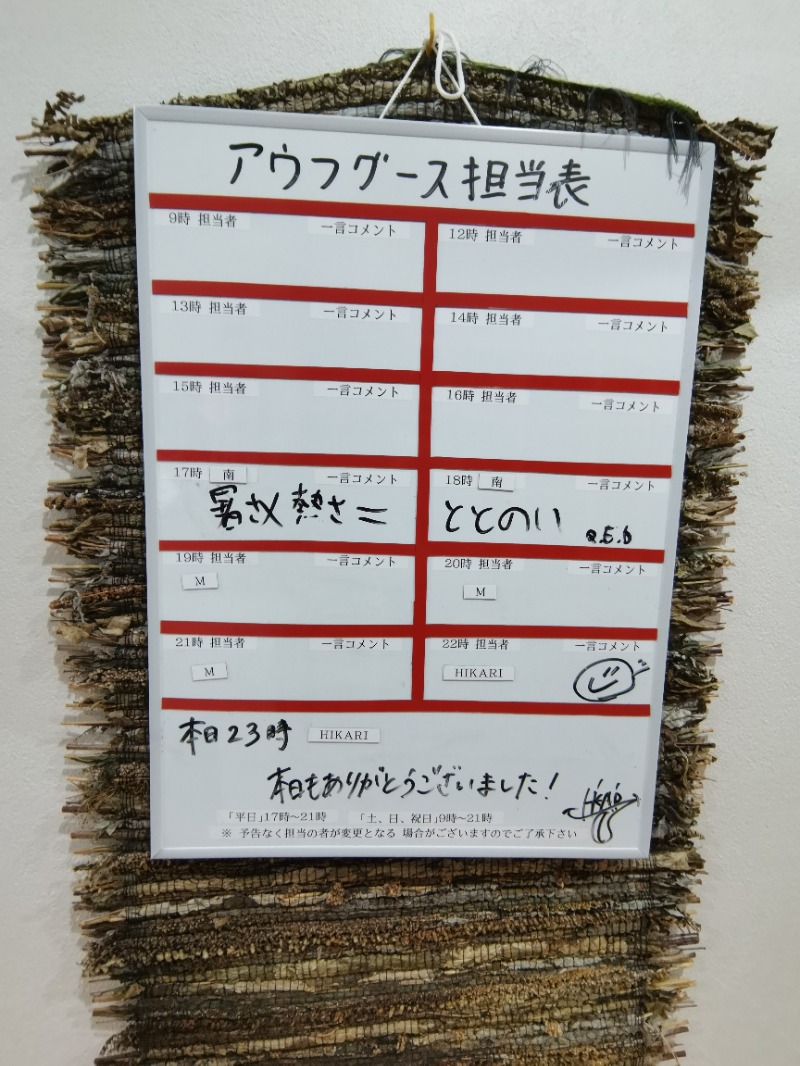 アウフグース担当表
9時 担当者 一言コメント
12時 担当者 一言コメント
13時 担当者 一言コメント
14時 担当者 一言コメント
15時 担当者 一言コメント
16時 担当者 一言コメント
17時 南 一言コメント
暑さ×熱さ=
18時 南 一言コメント
ととのい
19時 担当者 一言コメント
M
20時 担当者 一言コメント
M
21時 担当者 一言コメント
M
22時 担当者 一言コメント
HIKARI
本日23時 HIKARI
本日もありがとうございました!
「平日」17時~21時 「土、日、祝日」9時~21時
※ 予告なく担当の者が変更となる 場合がございますのでご了承下さい